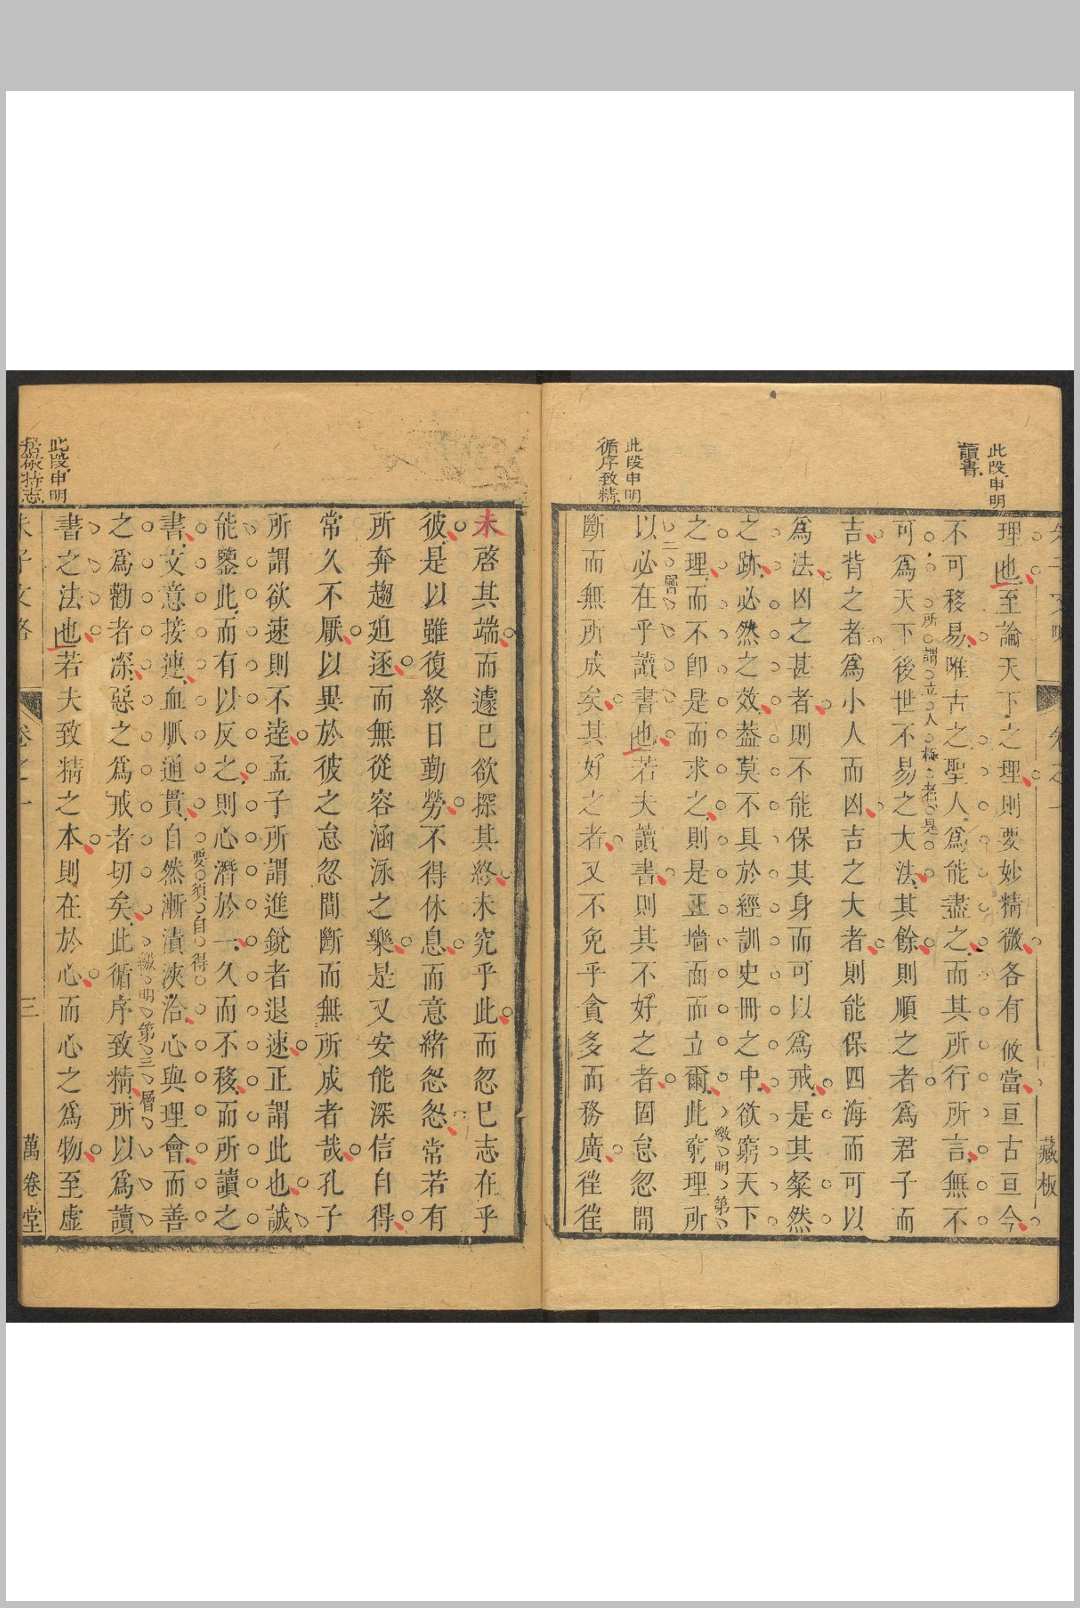 藏板
此段申明
讀書
理也至論天下之理則要妙精微各有攸當亘古亘今
不可移易唯古之聖人爲能盡之而其所行所言無不
所謂立人極者是
可爲天下後世不易之大法其餘則順之者爲君子而
吉背之者爲小人而凶吉之大者則能保四海而可以
爲法凶之甚者則不能保其身而可以爲戒是其粲然
之跡必然之效蓋莫不具於經訓史冊之中欲窮天下
繳明第
之理而不卽是而求之則是正墻面而立爾此窮理所
二層
此段申明
循序致精
以必在乎讀書也若夫讀書則其不好之者固怠忽間
斷而無所成矣其好之者又不免乎貪多而務廣徃徃
未啓其端而遽已欲探其終未究乎此而忽已志在乎
彼是以雖復終日勤勞不得休息而意緒怱怱常若有
所奔趨迫逐而無從容涵泳之樂是又安能深信自得
常久不厭以異於彼之怠忽間斷而無所成者哉孔子
所謂欲速則不逹孟子所謂進銳者退速正謂此也誠
能鑒此而有以反之則心潛於一久而不移而所讀之
要須自得
書文意接連血脈通貫自然漸漬浹洽心與理會而善
繳明第三層
之爲勸者深惡之爲戒者切矣此循序致精所以爲讀
此段申明
居敬持志
書之法也若夫致精之本則在於心而心之爲物至虛
朱子文略
卷之一
三
萬卷堂